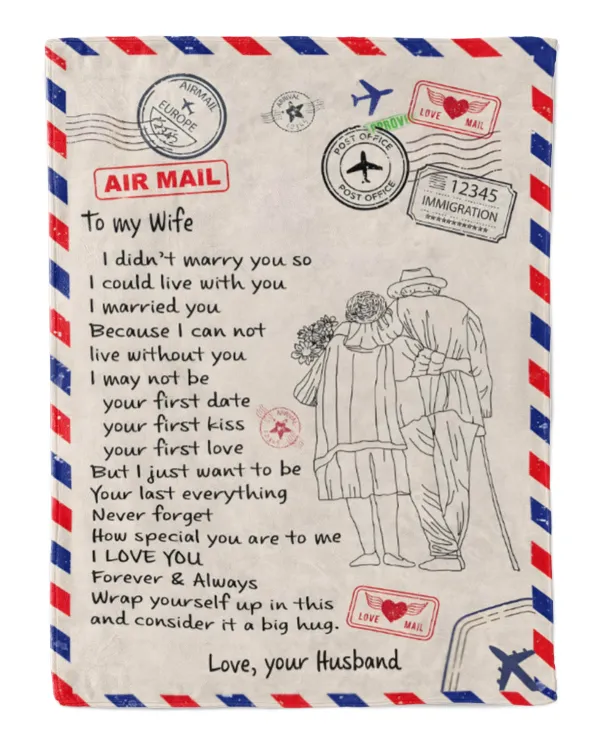 AIRMAIL
EUROPE
ARRIVAL
APPROVE
LOVE MAIL
POST OFFICE
POST OFFICE
12345
IMMIGRATION
AIR MAIL
To my Wife
I didn't marry you so
I could live with you
I married you
Because I can not
live without you
I may not be
your first date
your first kiss
your first love
But I just want to be
Your last everything
Never forget
How special you are to me
I LOVE YOU
Forever & Always
Wrap yourself up in this
and consider it a big hug.
ARRIVAL
LOVE MAIL
Love, your Husband